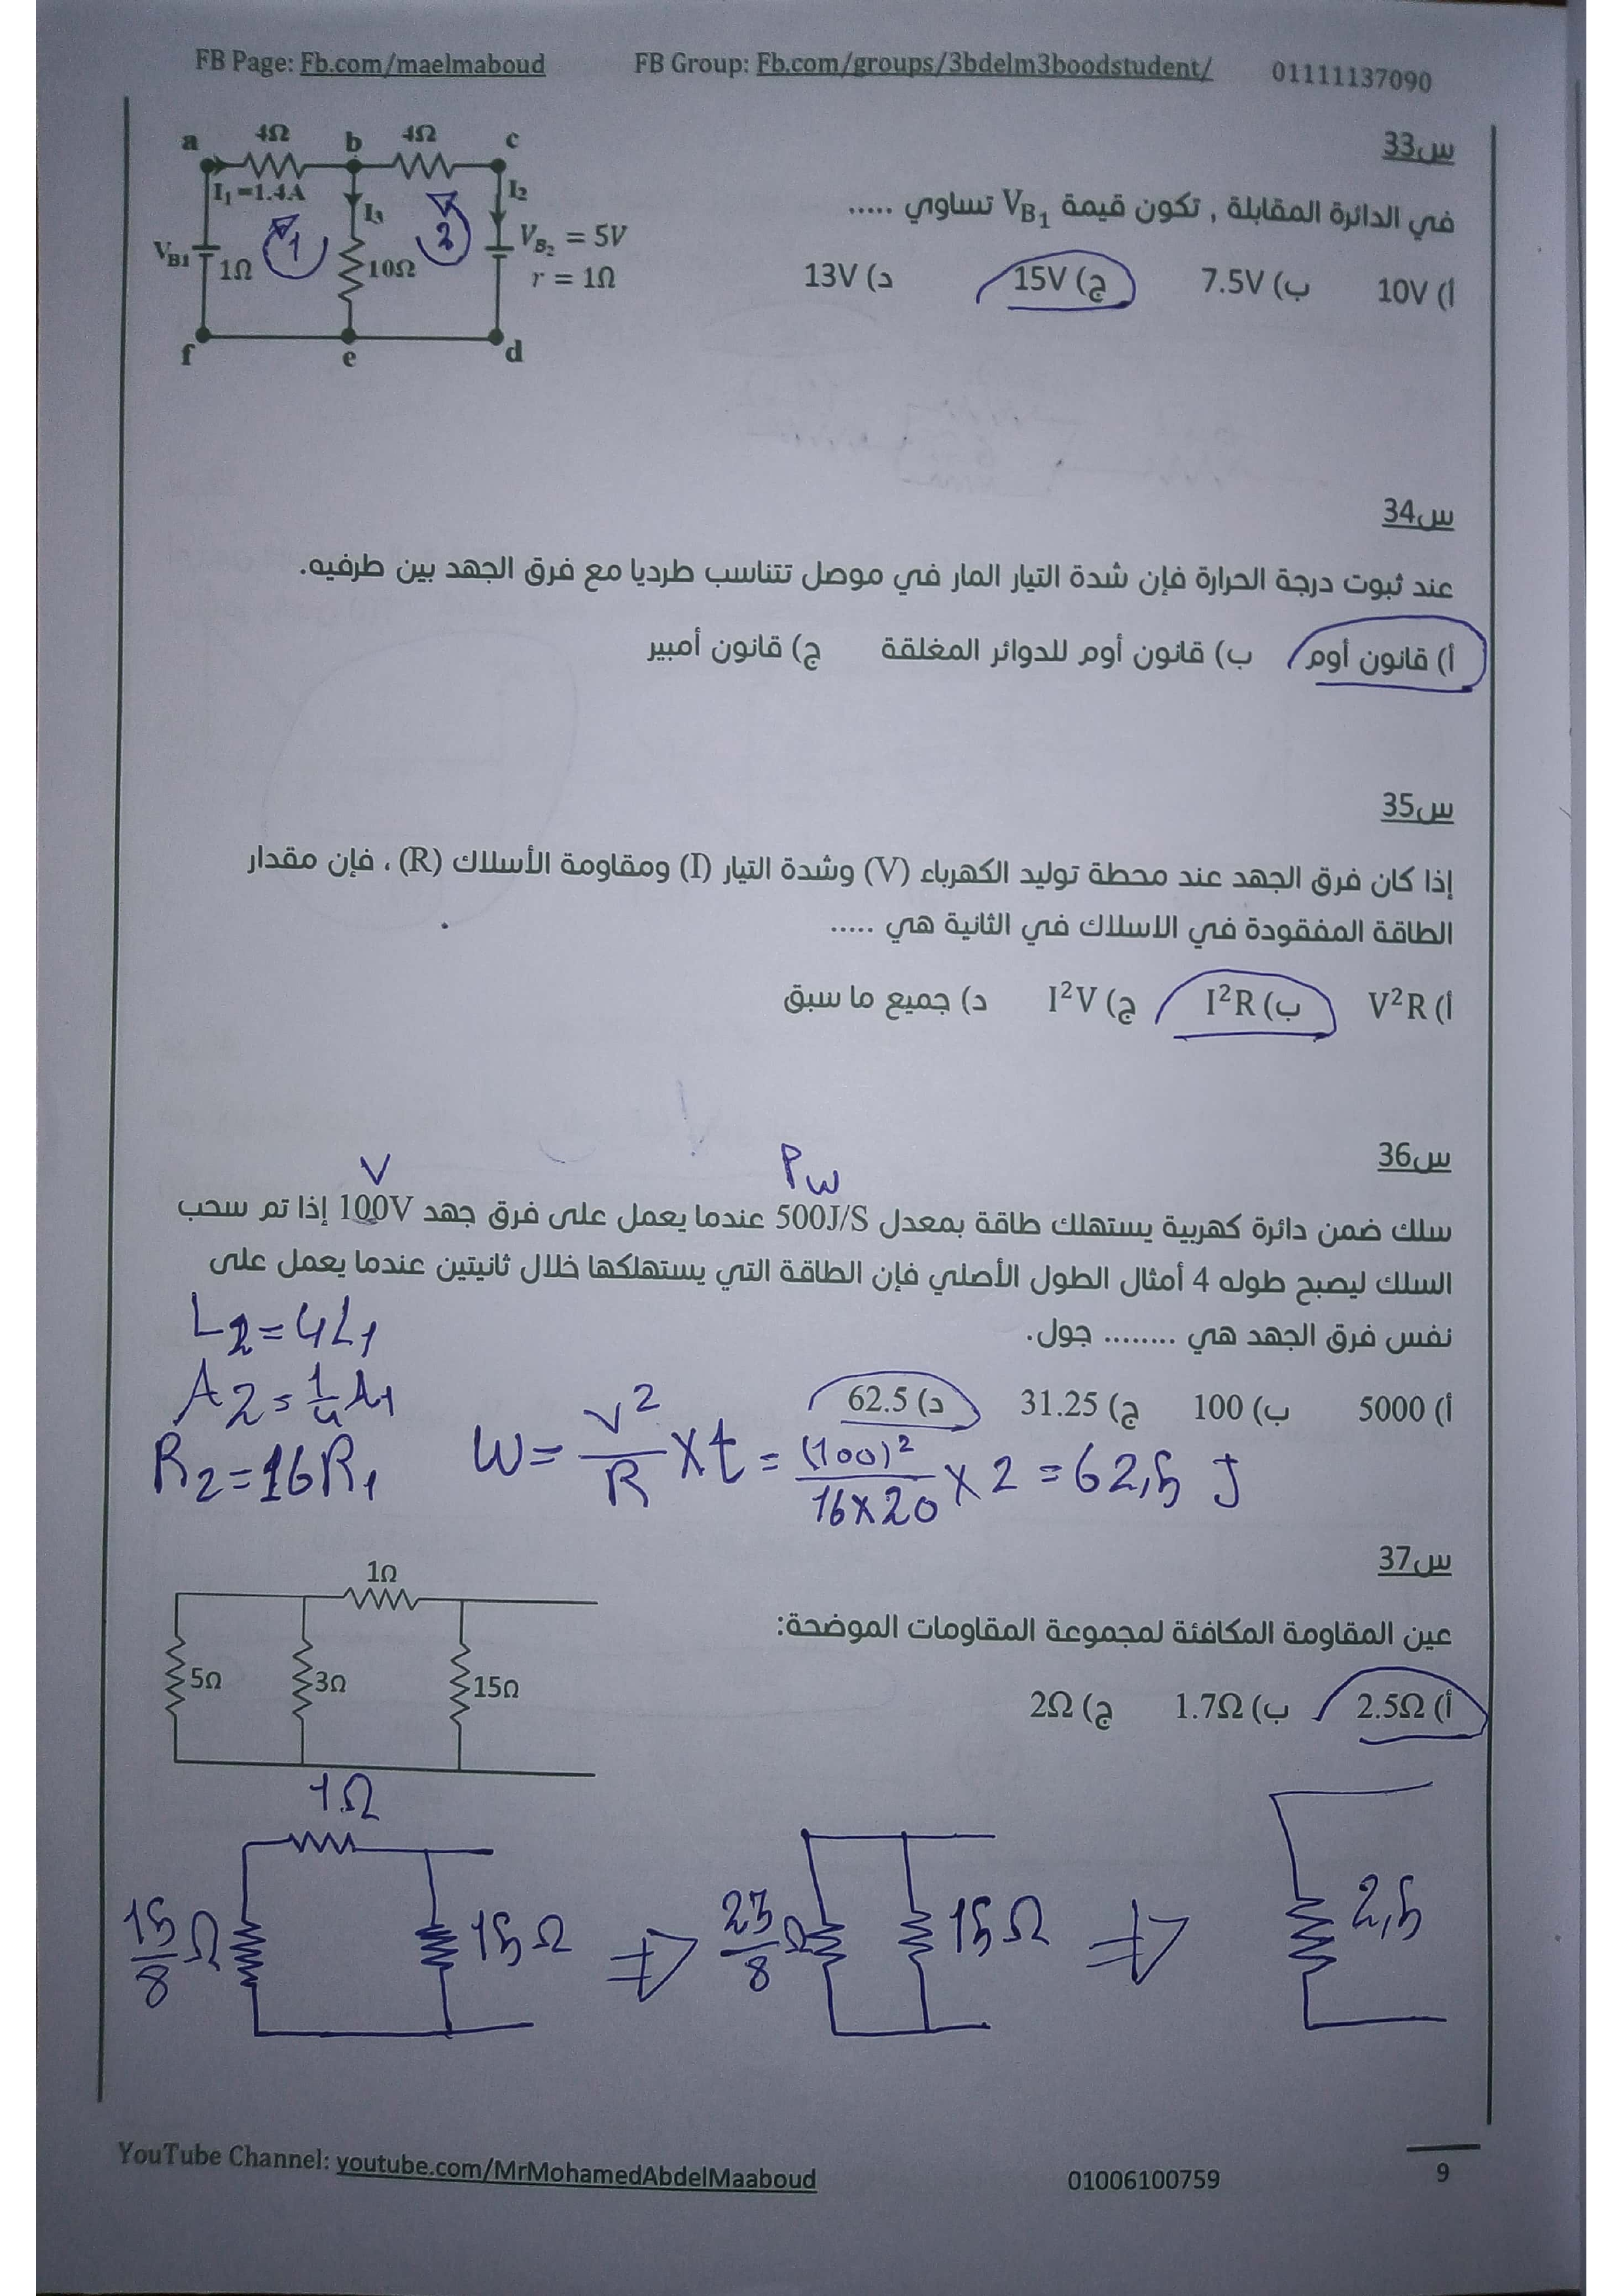 FB Page: Fb.com/maelmaboud FB Group: Fb.com/groups/3bdelm3boodstudent/ 01111137090
س33
في الدائرة المقابلة , تكون قيمة VB1 تساوي .....
أ) 10V ب) 7.5V ج) 15V د) 13V
a 4Ω b 4Ω c
I1=1.4A I3 I2
VB1 1Ω 1 10Ω 2 VB2 = 5V
r = 1Ω
f e d
س34
عند ثبوت درجة الحرارة فإن شدة التيار المار في موصل تتناسب طرديا مع فرق الجهد بين طرفيه.
أ) قانون أوم ب) قانون أوم للدوائر المغلقة ج) قانون أمبير
س35
إذا كان فرق الجهد عند محطة توليد الكهرباء (V) وشدة التيار (I) ومقاومة الأسلاك (R) ، فإن مقدار
الطاقة المفقودة في الاسلاك في الثانية هي .....
أ) V²R ب) I²R ج) I²V د) جميع ما سبق
س36
V Pw
سلك ضمن دائرة كهربية يستهلك طاقة بمعدل 500J/S عندما يعمل على فرق جهد 100V إذا تم سحب
السلك ليصبح طوله 4 أمثال الطول الأصلي فإن الطاقة التي يستهلكها خلال ثانيتين عندما يعمل على
نفس فرق الجهد هي ........ جول.
أ) 5000 ب) 100 ج) 31.25 د) 62.5
L2=4L1
A2=1/4 A1
R2=16R1
W= V²/R X t = (100)²/16X20 X 2 = 62,5 J
س37
عين المقاومة المكافئة لمجموعة المقاومات الموضحة:
أ) 2.5Ω ب) 1.7Ω ج) 2Ω
1Ω
5Ω 3Ω 15Ω
1Ω
15/8 Ω 15Ω ⇒ 23/8 Ω 15Ω ⇒ 2,5
YouTube Channel: youtube.com/MrMohamedAbdelMaaboud 01006100759 9